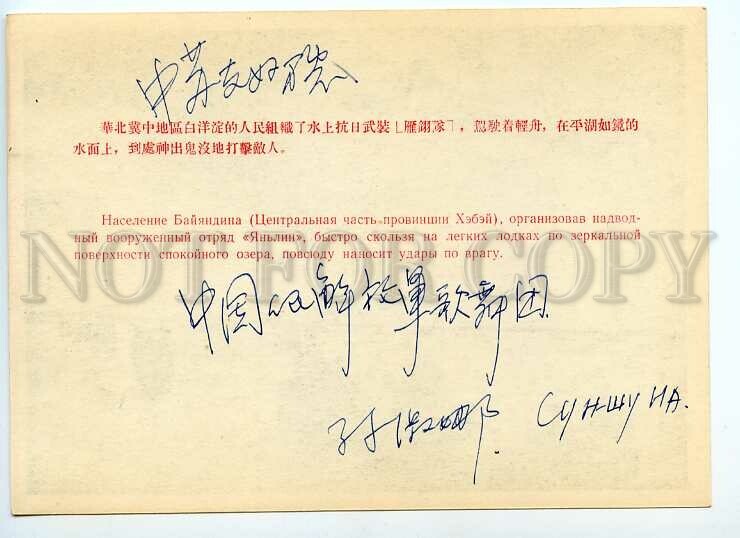 中苏友好万
華北冀中地區白洋淀的人民組織了水上抗日武裝「雁翎隊」，駕駛着輕舟，在平湖如鏡的
水面上，到處神出鬼沒地打擊敵人。
Население Байяндина (Центральная часть провинции Хэбэй), организовав надвод-
ный вооруженный отряд «Яньлин», быстро скользя на легких лодках по зеркальной
поверхности спокойного озера, повсюду наносит удары по врагу.
NOT FOR COPY
中国人民解放軍歌舞团
孙淑娜 СУН ШУ НА.